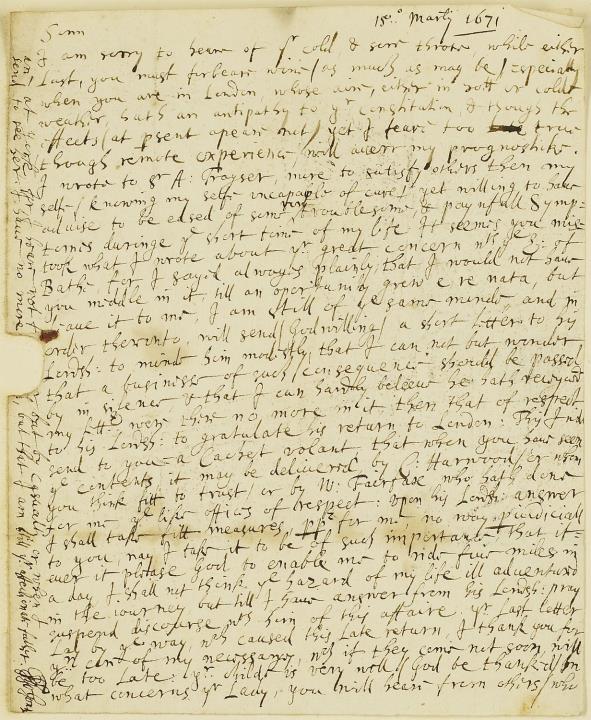 15.º Martij 1671
Sonn
I am sorry to heare of yr cold & sore throte, while either
Last, you must forbeare wine/as much as may be/especially
when you are in London, whose aire, either in hott or cold
weather, hath an antipathy to yr constitution, & though the
effects/at p'sent apeare not/yet I feare too true
though remote experience will averr my prognostike.
I wrote to Sr A: Frayser, more to satisfy others then my
self/knowing my selfe uncapable of cure/yet willing to have
advise to be eased of some very troublesome, & paynfull Symp=
tomes duringe ye short time of my life It seemes you mis=
tooke what I wrote about yr great concern wth ye E: of
Bathe, for I sayd alwayes plainly, that I would not have
you medle in it, till an oportunity grew e re nata, but
leave it to me, I am still of ye same minde, and in
order therunto, will send/God willing/a short letter to his
Lordsh: to minde him modestly, that I can not but wonder,
that a business of such consequence should be passed
by in silence, & that I can hardly beleeve he hath receyved
my were there no more in it then that of respect
to his Lordsh: to gratulate his return to London: This I
send to you a Cachet volant that when you have seen
ye contents, it may be delivered by C: Harwood/er whom
you think fitt to trust/or by W: Fairfax who hath done
for me ye like offices of respect: Upon his Lordsh: answer
I shall take fitt measures, for me, no way p'iudiciall
to you, nay I take it to be of such importance, that if
ever it please God to enable me to ride five miles in
a day I shall not think ye hazard of my life ill adventured
in the journey but till I have answer from his Lordsh: pray
suspend discourse wth him of this affaire yr Last letter
Lay by ye way, wch caused this Late return, I thank you for
yr care of my necessarys, wch if they come not soon, will
be too Late: yr childe is very well/God be thanked/in
what concerns yr Lady, you will heare from others/who
but by Casualty or when I
but that I am
send to see her I have no more